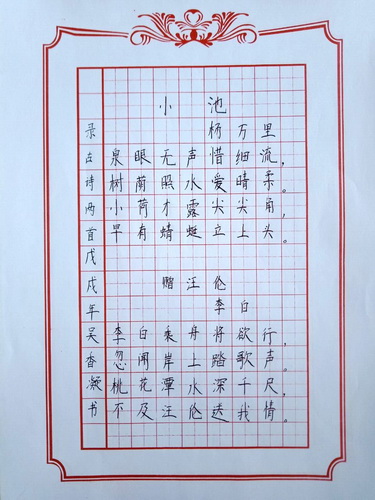 小池
杨万里
泉眼无声惜细流，
树荫照水爱晴柔。
小荷才露尖尖角，
早有蜻蜓立上头。
赠汪伦
李白
李白乘舟将欲行，
忽闻岸上踏歌声。
桃花潭水深千尺，
不及汪伦送我情。
录古诗两首戊戌年吴香凝书